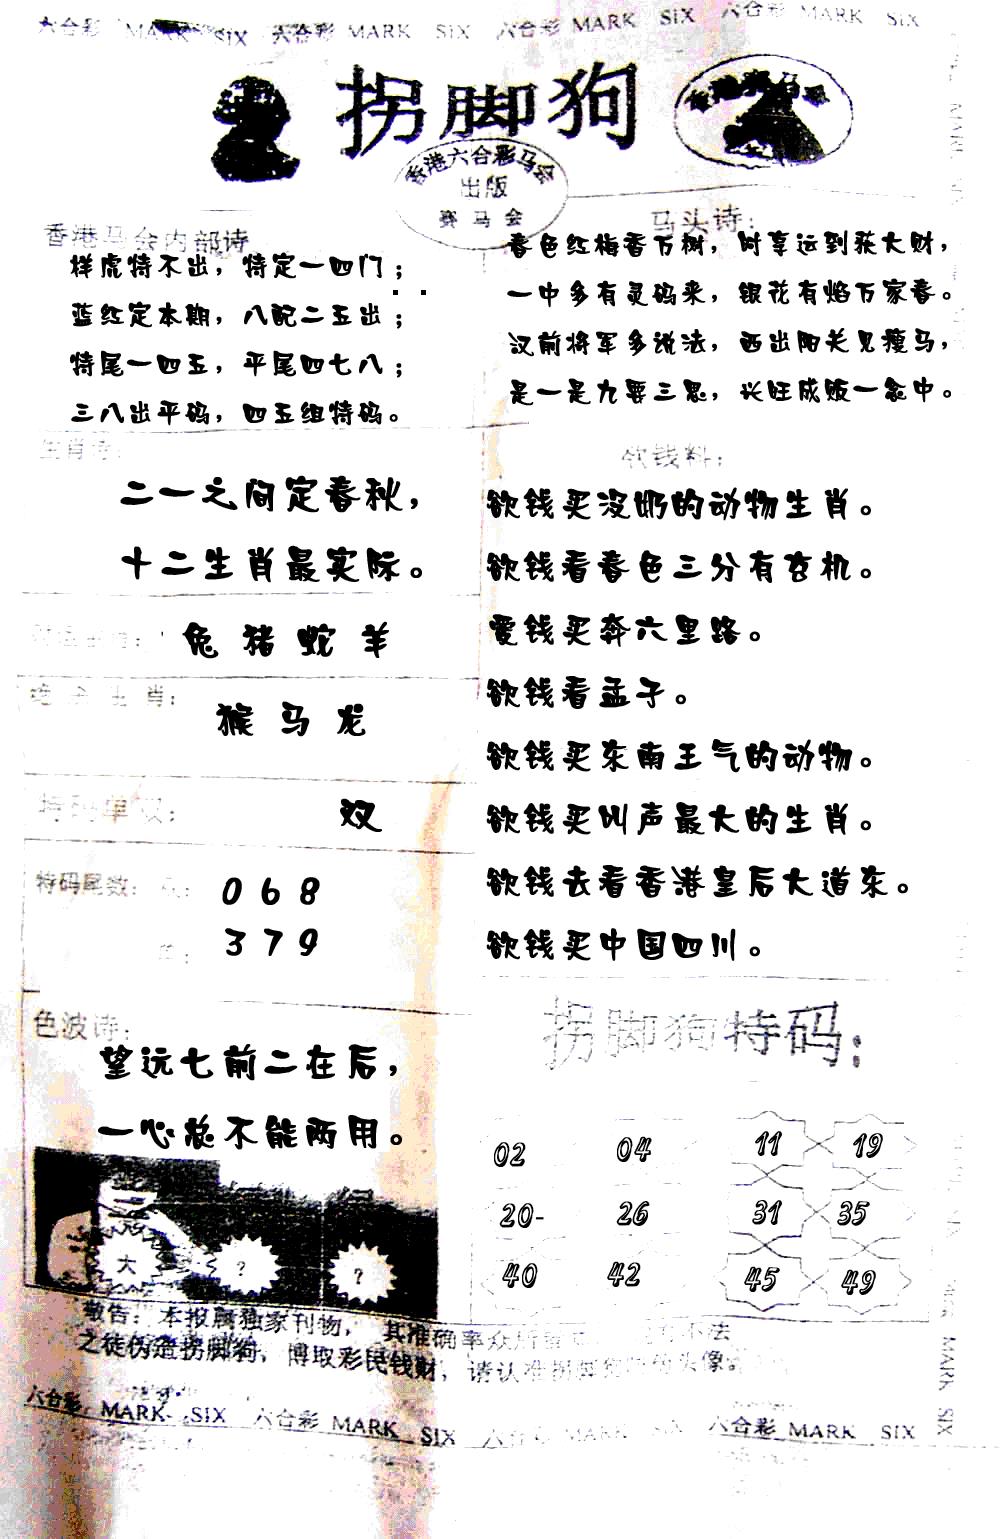 六合彩 MARK SIX 六合彩 MARK SIX 六合彩 MARK SIX 六合彩 MARK SIX
拐脚狗
香港六合彩马会
出版
赛马会
香港马会内部诗
样虎特不出，特定一四门；
蓝红定本期，八配二五出；
特尾一四五，平尾四七八；
三八出平码，四五组特码。
马头诗：
春色红梅香万树，时享运到获大财，
一中多有灵码来，银花有焰万家春。
汉前将军多说法，西出阳关见瘦马，
是一是九要三思，兴旺成败一念中。
生肖诗：
二一之间定春秋，
十二生肖最实际。
兔 猪 蛇 羊
绝杀生肖：
猴 马 龙
特码单双：
双
特码尾数：
0 6 8
3 7 9
色波诗：
望远七前二在后，
一心总不能两用。
大 ? ?
欲钱料：
欲钱买没奶的动物生肖。
欲钱看春色三分有玄机。
爱钱买奔六里路。
欲钱看孟子。
欲钱买东南王气的动物。
欲钱买叫声最大的生肖。
欲钱去看香港皇后大道东。
欲钱买中国四川。
拐脚狗特码：
02 04 11 19
20- 26 31 35
40 42 45 49
敬告：本报属独家刊物，其准确率众所
不法
之徒伪造拐脚狗，博取彩民钱财，请认准拐脚狗
头像
六合彩 MARK SIX 六合彩 MARK SIX 六合彩 MARK SIX 六合彩 MARK SIX
MARK SIX